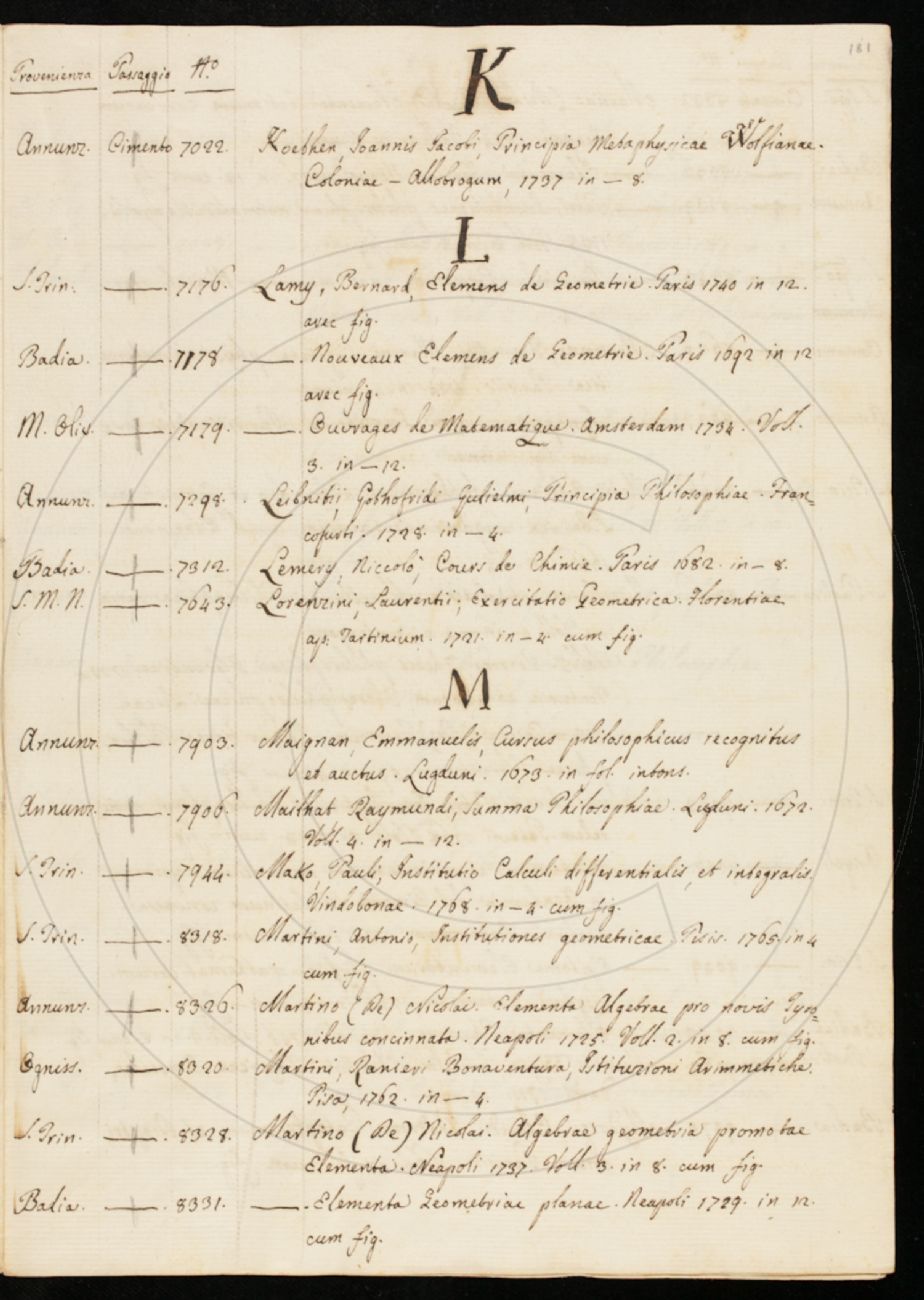 181
Provenienza Passaggio N.o
K
Annunz. Cimento 7022. Koethen, Joannis Jacobi, Principia Metaphysicae Wolfianae.
Coloniae - Allobrogum, 1737 in - 8.
L
S. Trin. 7176. Lamy, Bernard, Elemens de Geometrie. Paris 1740 in 12.
avec fig.
Badia. 7178 —. Nouveaux Elemens de Geometrie. Paris 1692 in 12
avec fig.
M. Oliv. 7179. —. Ouvrages de Matematique. Amsterdam 1734. Voll.
3. in - 12.
Annunz. 7298. Leibnitii, Gothofridi Gulielmi, Principia Philosophiae. Fran=
cofurti. 1728. in - 4.
Badia. 7312. Lemery, Niccolò, Cours de Chimie. Paris 1682. in - 8.
S. M. N. 7643. Lorenzini, Laurentii, Exercitatio Geometrica. Florentiae
ap. Tartinium. 1721. in - 4. cum fig.
M
Annunz. 7903. Maignan, Emmanuelis, Cursus philosophicus recognitus
et auctus. Lugduni. 1673. in fol. intons.
Annunz. 7906. Mailhat Raymundi, Summa Philosophiae. Lugduni. 1672.
Voll. 4. in - 12.
S. Trin. 7944. Mako, Pauli, Institutio Calculi differentialis, et integralis.
Vindobonae. 1768. in - 4. cum fig.
S. Trin. 8318. Martini, Antonio, Institutiones geometricae Pisis. 1765. in 4
cum fig.
Annunz. 8326. Martino (De) Nicolai. Elementa Algebrae pro novis Tyro=
nibus concinnata. Neapoli 1725. Voll. 2. in 8. cum fig.
Ogniss. 8320. Martini, Ranieri Bonaventura, Istituzioni Arimmetiche.
Pisa, 1762. in - 4.
S. Trin. 8328. Martino (De) Nicolai. Algebrae geometria promotae
Elementa. Neapoli 1737. Voll. 3. in 8. cum fig.
Badia. 8331. —. Elementa Geometriae planae. Neapoli 1729. in 12.
cum fig.